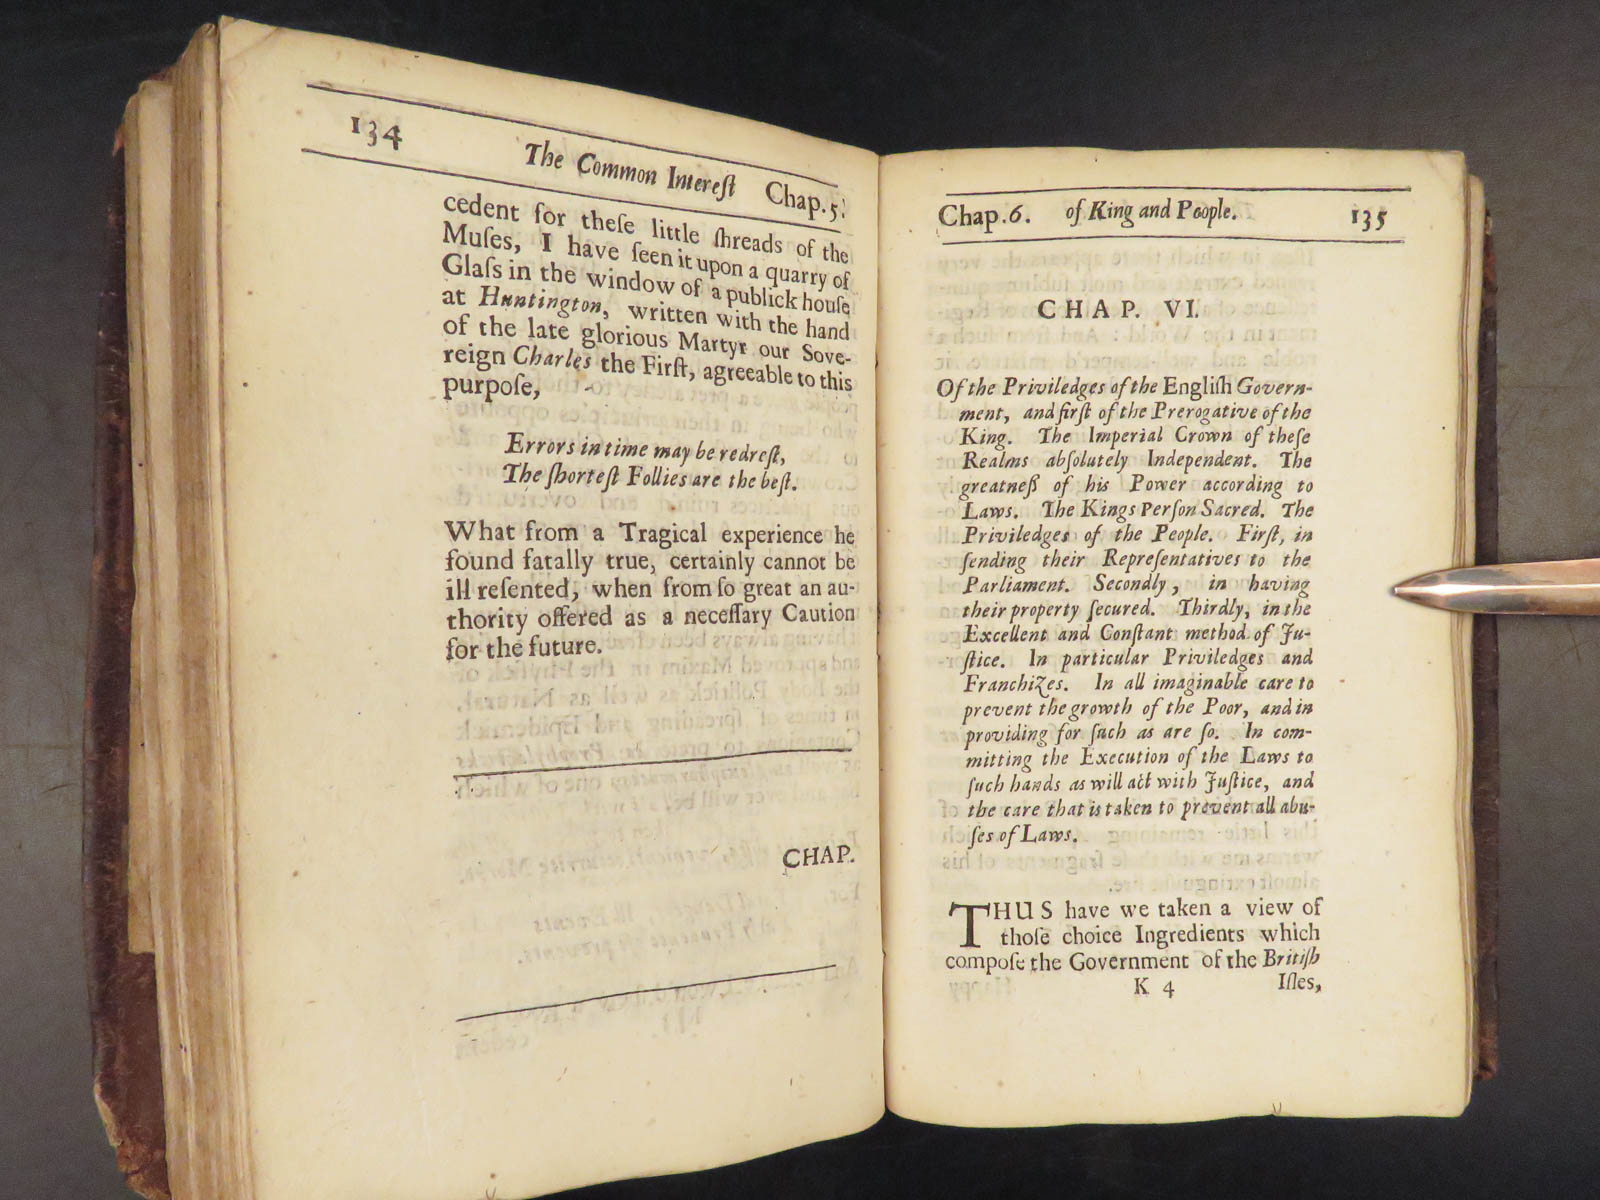 134 The Common Intereſt Chap.5.
cedent for theſe little ſhreads of the
Muſes, I have ſeen it upon a quarry of
Glaſs in the window of a publick houſe
at Huntington, written with the hand
of the late glorious Martyr our Sove-
reign Charles the Firſt, agreeable to this
purpoſe,
Errors in time may be redreſt,
The ſhorteſt Follies are the beſt.
What from a Tragical experience he
found fatally true, certainly cannot be
ill reſented, when from ſo great an au-
thority offered as a neceſſary Caution
for the future.
CHAP.
Chap.6. of King and People. 135
CHAP. VI.
Of the Priviledges of the Engliſh Govern-
ment, and firſt of the Prerogative of the
King. The Imperial Crown of theſe
Realms abſolutely Independent. The
greatneß of his Power according to
Laws. The Kings Perſon Sacred. The
Priviledges of the People. Firſt, in
ſending their Repreſentatives to the
Parliament. Secondly, in having
their property ſecured. Thirdly, in the
Excellent and Conſtant method of Ju-
ſtice. In particular Priviledges and
Franchizes. In all imaginable care to
prevent the growth of the Poor, and in
providing for ſuch as are ſo. In com-
mitting the Execution of the Laws to
ſuch hands as will act with Juſtice, and
the care that is taken to prevent all abu-
ſes of Laws.
THUS have we taken a view of
thoſe choice Ingredients which
compoſe the Government of the Britiſh
K 4 Iſles,